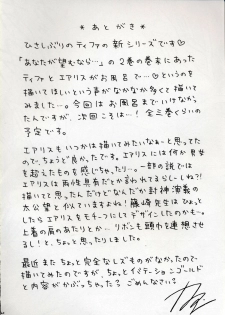 ＊あとがき＊
ひさしぶりのティファの新シリーズです♡
「あなたが望むなら…」の2巻の巻末にあった
ティファとエアリスがお風呂で…♡というのを
描いてほしいという声がなかなか多くて描いて
みました…。今回はお風呂までいけなかっ
たんですが、次回こそは！全三巻くらいの
予定です。
エアリスもいつかは描いてみたいなぁーと思ってた
ので、ちょうど良かったです。エアリスには何か男女
を超えたものを感じちゃったり…。一部の説では
エアリスは両性具有だとか言われてるらしーしね?!
描いてて思ったんだけどなんだか封神演義の
太公望と似ていますよね! 藤崎先生はひょっと
したらエアリスをモチーフにしてデザインしたのかも…。
上着の肩のあたりとか…。リボンも頭巾を連想させ
るし！と、ちょっと思ったりしました。
最近またちょっと完全なレズものがなかったので
描いてみたのですが、ちょっとイミテーションゴールド
と内容がかぶっちゃった？ごめんなさい？